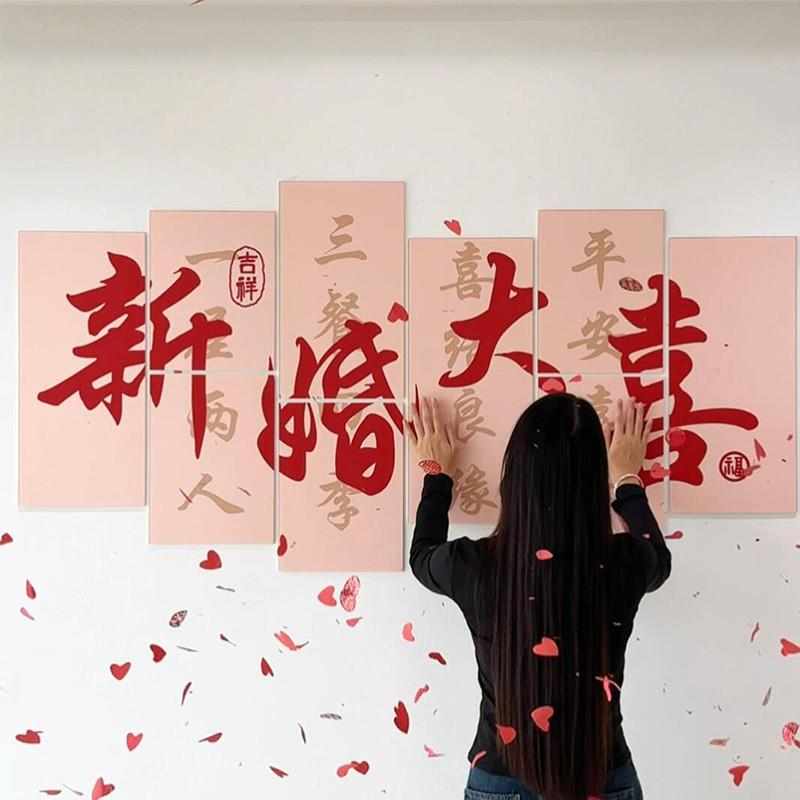 新婚大喜
一屋两人
吉祥
三餐四季
喜结良缘
平安喜
福